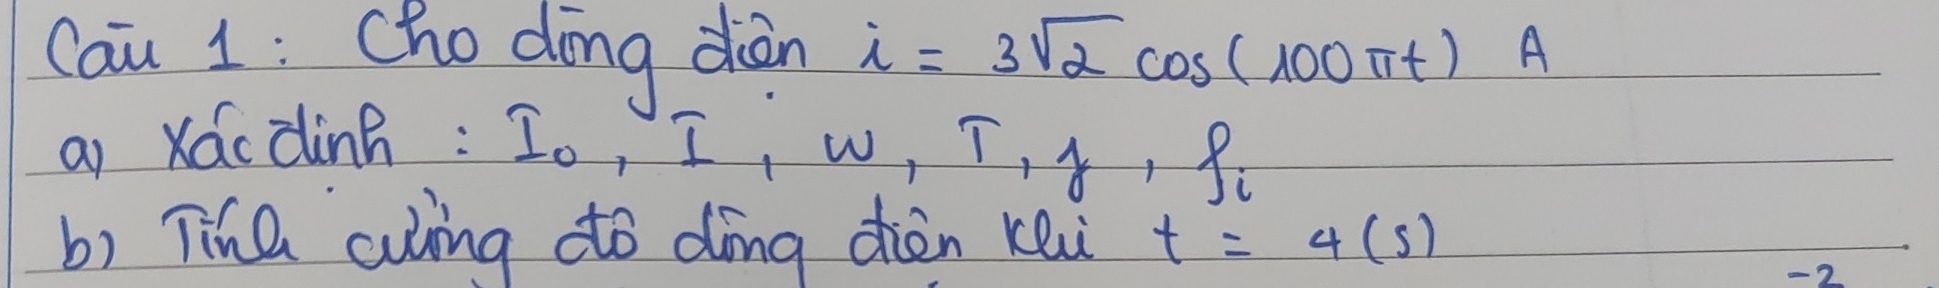 Câu 1 : Cho dòng điện i = 3√2 cos(100πt) A
a) Xác định : I₀, I, w, T, f, φᵢ
b) Tính cường độ dòng điện khi t = 4 (s)
-2